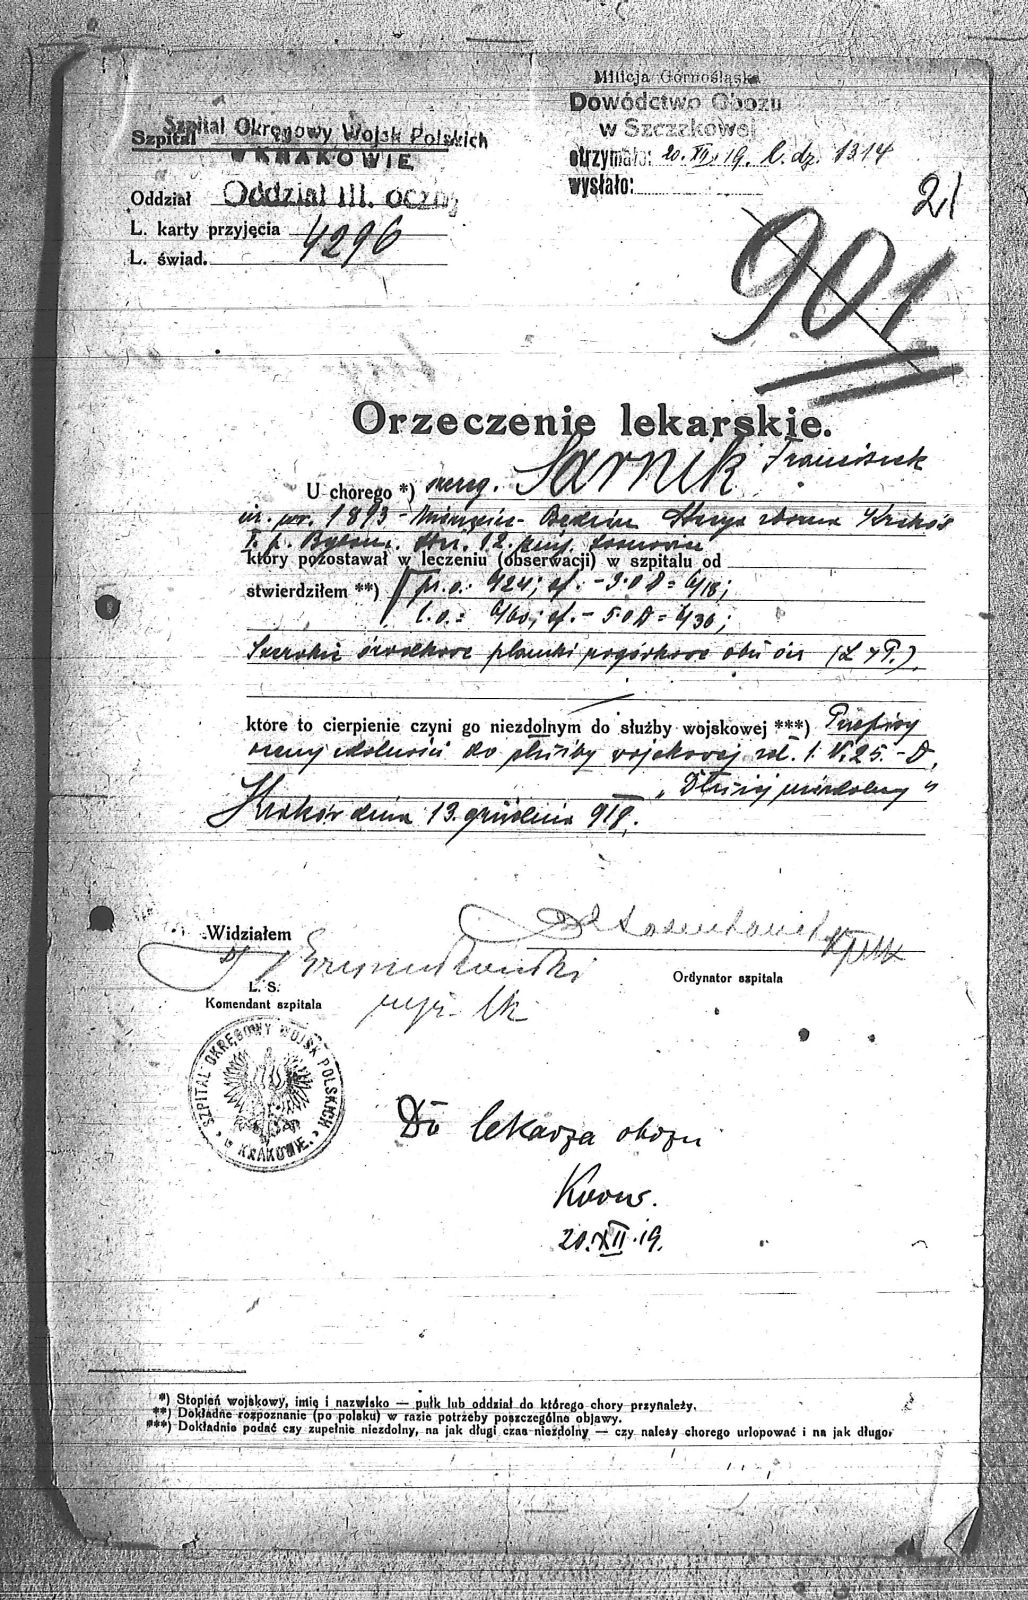 Milicja Górnośląska
Dowództwo Obozu
w Szczakowej
otrzymało: 20. XII. 19. l. dz. 1314
wysłało:
Szpital Szpital Okręgowy Wojsk Polskich
w KRAKOWIE
Oddział Oddział III. oczny
L. karty przyjęcia 4296
L. świad.
21
901
Orzeczenie lekarskie.
U chorego *) szereg. Sarnik Franciszek
ur. 1893 Będzin Stacya zborna Kraków
12
który pozostawał w leczeniu (obserwacji) w szpitalu od
stwierdziłem **) pr. o.: 6/24; cf. - 3.0 D = 6/18;
l. o.: 6/60; cf. - 5.0 D = 6/36;
Szerokie środkowe plamki rogówkowe obu ócz (L i P.).
które to cierpienie czyni go niezdolnym do służby wojskowej ***) Przepisy
oceny zdolności do służby wojskowej zał. 1. N. 25. - D.
"
Kraków dnia 13. grudnia 919.
Widziałem
L. S.
Komendant szpitala
Ordynator szpitala
SZPITAL OKRĘGOWY WOJSK POLSKICH
w KRAKOWIE.
Do lekarza obozu
20. XII. 19.
*) Stopień wojskowy, imię i nazwisko — pułk lub oddział do którego chory przynależy.
**) Dokładne rozpoznanie (po polsku) w razie potrzeby poszczególne objawy.
***) Dokładnie podać czy zupełnie niezdolny, na jak długi czas niezdolny — czy należy chorego urlopować i na jak długo.